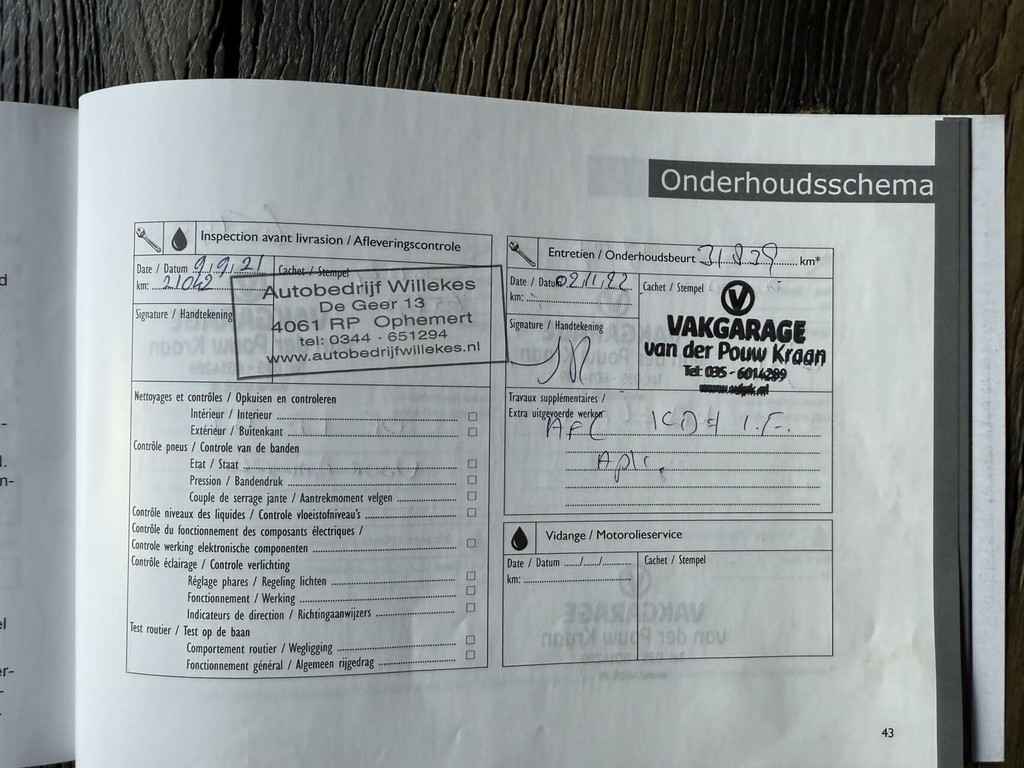 Onderhoudsschema
Inspection avant livrasion / Afleveringscontrole
Date / Datum 9.9.21
km: 21042
Cachet / Stempel
Autobedrijf Willekes
De Geer 13
4061 RP Ophemert
tel: 0344 - 651294
www.autobedrijfwillekes.nl
Signature / Handtekening
Nettoyages et contrôles / Opkuisen en controleren
Intérieur / Interieur
Extérieur / Buitenkant
Contrôle pneus / Controle van de banden
Etat / Staat
Pression / Bandendruk
Couple de serrage jante / Aantrekmoment velgen
Contrôle niveaux des liquides / Controle vloeistofniveau's
Contrôle du fonctionnement des composants électriques /
Controle werking elektronische componenten
Contrôle éclairage / Controle verlichting
Réglage phares / Regeling lichten
Fonctionnement / Werking
Indicateurs de direction / Richtingaanwijzers
Test routier / Test op de baan
Comportement routier / Wegligging
Fonctionnement général / Algemeen rijgedrag
Entretien / Onderhoudsbeurt 31.839 km*
Date / Datum 02.11.22
km:
Cachet / Stempel
VAKGARAGE
van der Pouw Kraan
Tel: 035 - 6014289
Signature / Handtekening
Travaux supplémentaires /
Extra uitgevoerde werken
Vidange / Motorolieservice
Date / Datum ..../..../....
km:
Cachet / Stempel
43